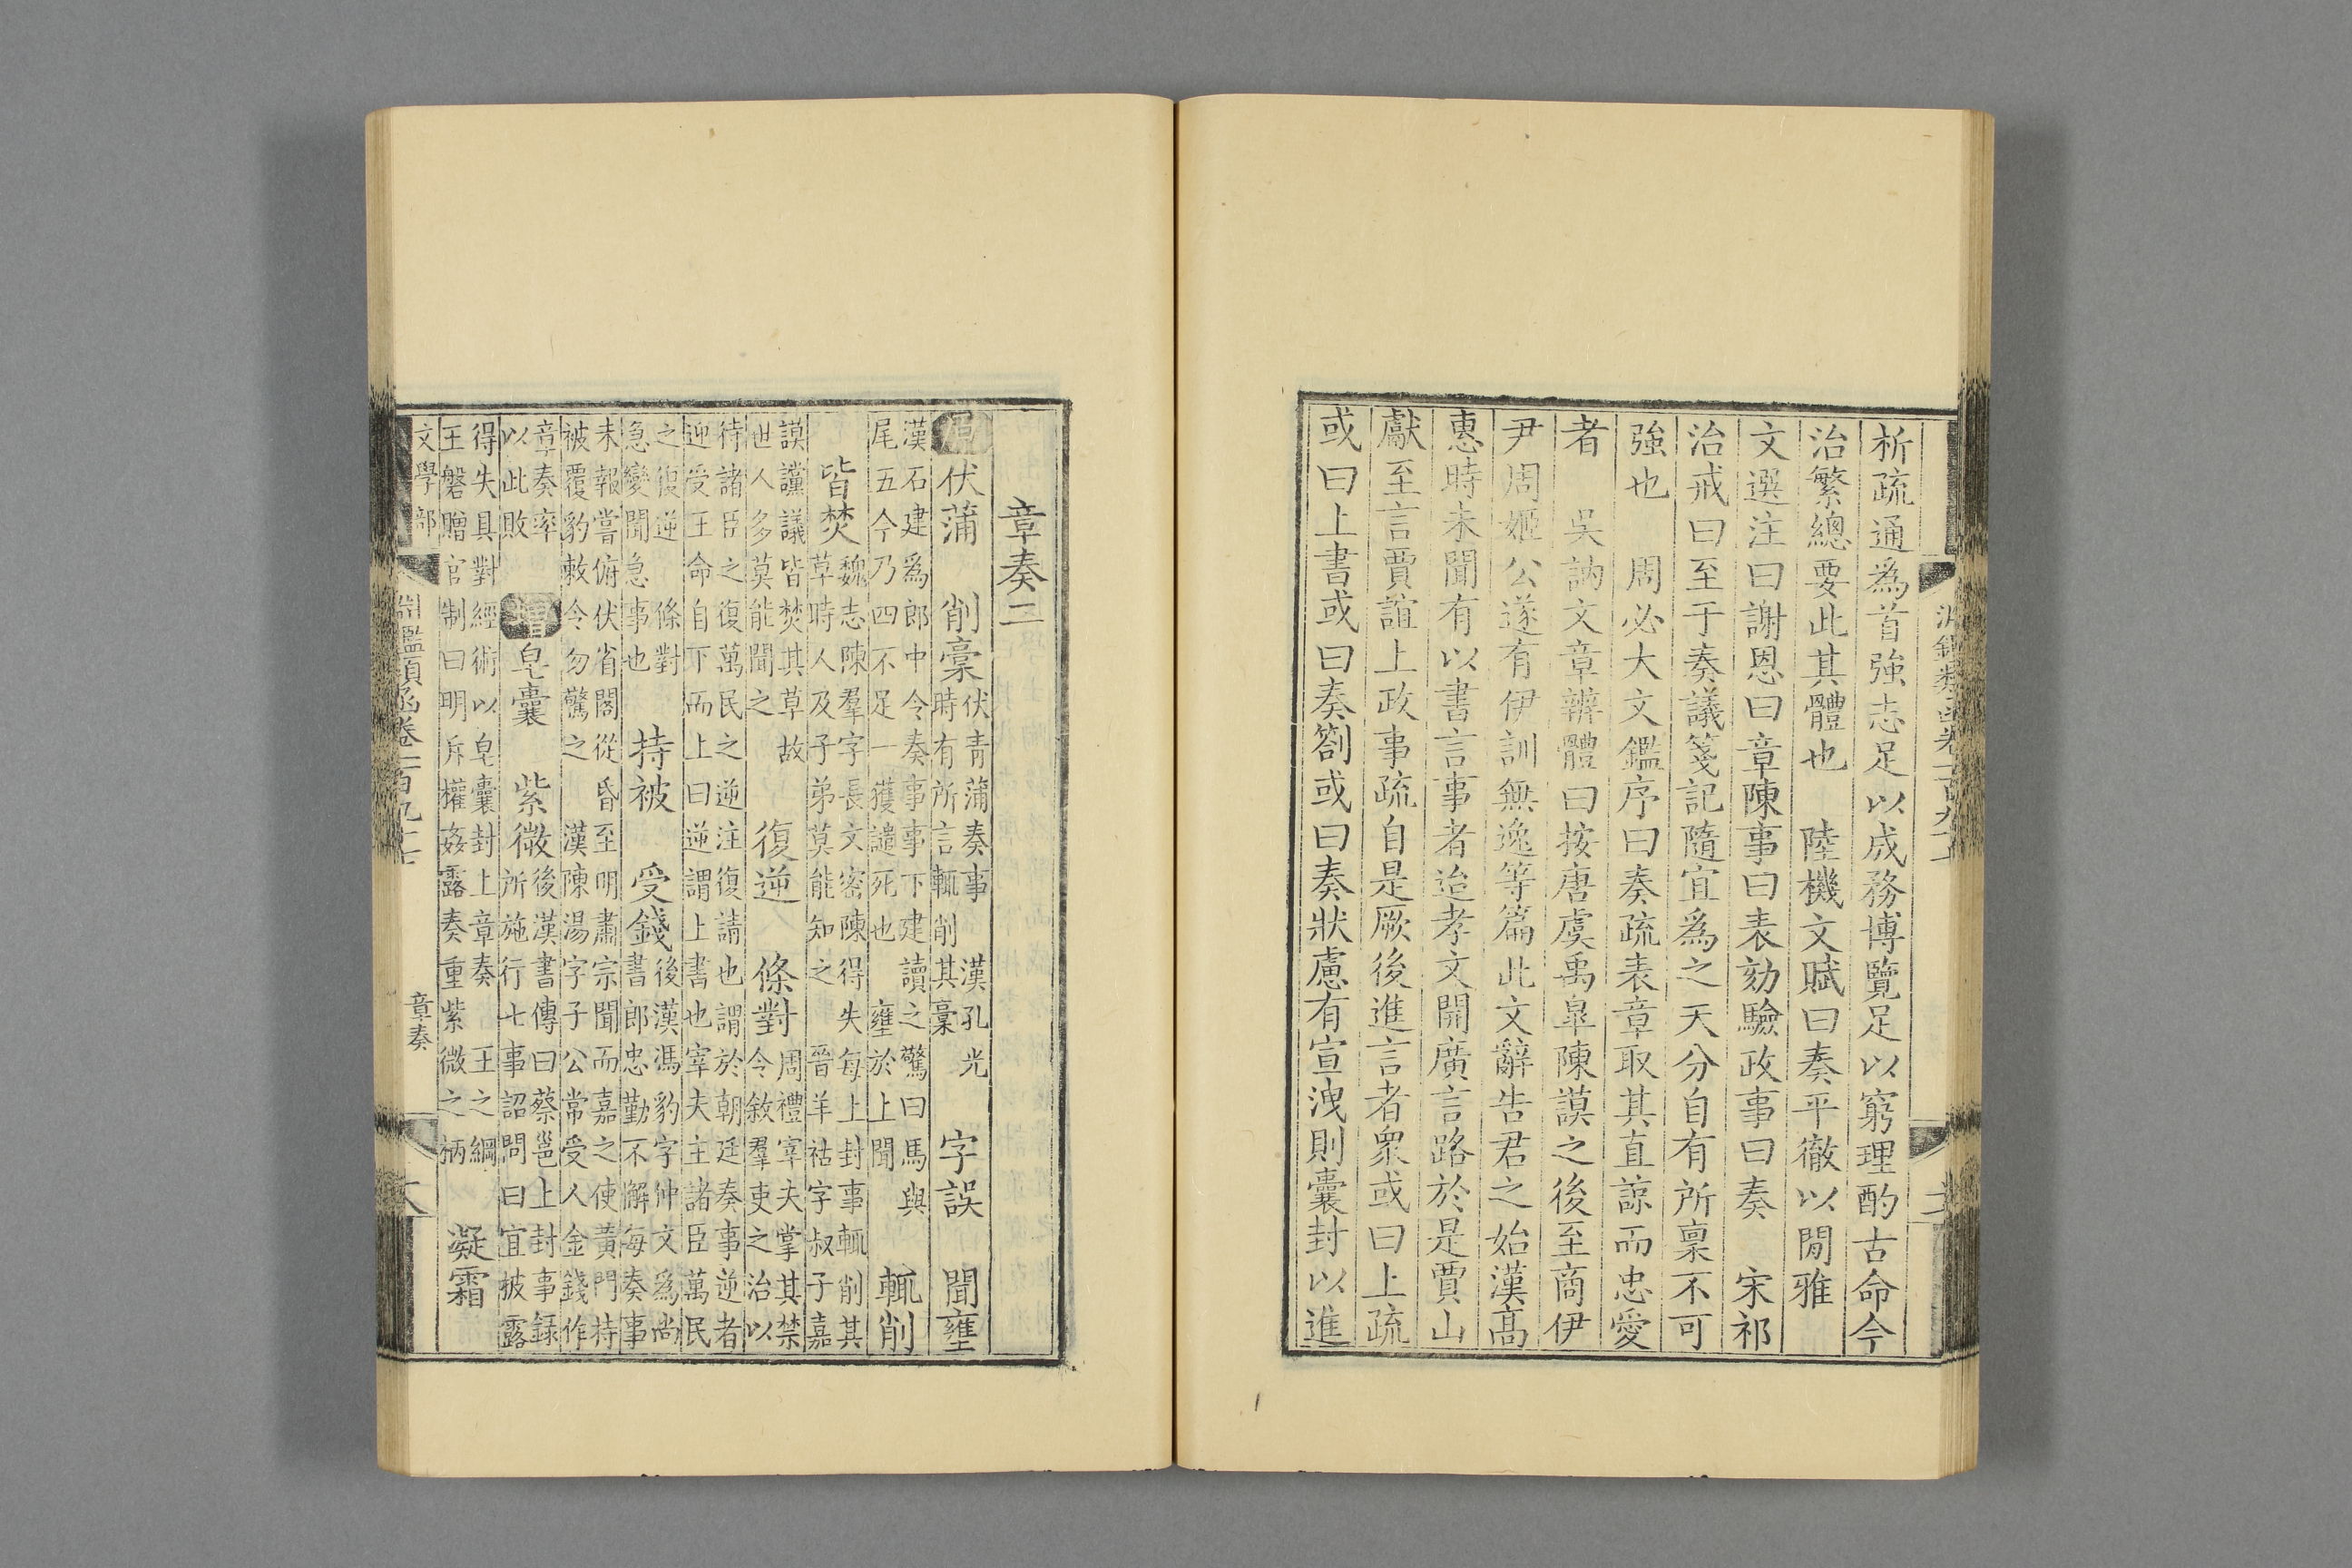 析疏通為首強志足以成務博覽足以窮理酌古命今
治繁總要此其體也 陸機文賦曰奏平徹以閒雅
文選注曰謝恩曰章陳事曰表劾驗政事曰奏 宋祁
治戒曰至于奏議箋記隨宜爲之天分自有所禀不可
強也 周必大文鑑序曰奏疏表章取其直諒而忠愛
者 吳訥文章辨體曰按唐虞禹臯陳謨之後至商伊
尹周姬公遂有伊訓無逸等篇此文辭告君之始漢高
惠時未聞有以書言事者迨孝文開廣言路於是賈山
獻至言賈誼上政事疏自是厥後進言者衆或曰上疏
或曰上書或曰奏劄或曰奏狀慮有宣洩則囊封以進
章奏二
伏蒲 削稾
伏青蒲奏事 漢孔光
時有所言輒削其稾
字誤 聞壅
漢石建爲郎中令奏事事下建讀之驚曰馬與
尾五今乃四不足一獲譴死也 壅於上聞
輒削
皆焚
魏志陳羣字長文密陳得失每上封事輒削其
草時人及子弟莫能知之 晉羊祜字叔子嘉
謨讜議皆焚其草故
世人多莫能聞之
復逆 條對
周禮宰夫掌其禁
令敘羣吏之治以
待諸臣之復萬民之逆注復請也謂於朝廷奏事逆者
迎受王命自下而上曰逆謂上書也宰夫主諸臣萬民
之復逆 條對
急變聞急事也
持被 受錢
後漢馮豹字仲文爲尚
書郎忠勤不懈每奏事
未報嘗俯伏省閣從昏至明肅宗聞而嘉之使黃門持
被覆豹敕令勿驚之 漢陳湯字子公常受人金錢作
章奏率
以此敗
皂囊 紫微
後漢書傳曰蔡邕上封事録
所施行七事詔問曰宜披露
得失具對經術以皂囊封上章奏 王之綱
王磐贈官制曰明斥權姦露奏重紫微之柄
凝霜
文學部
章奏